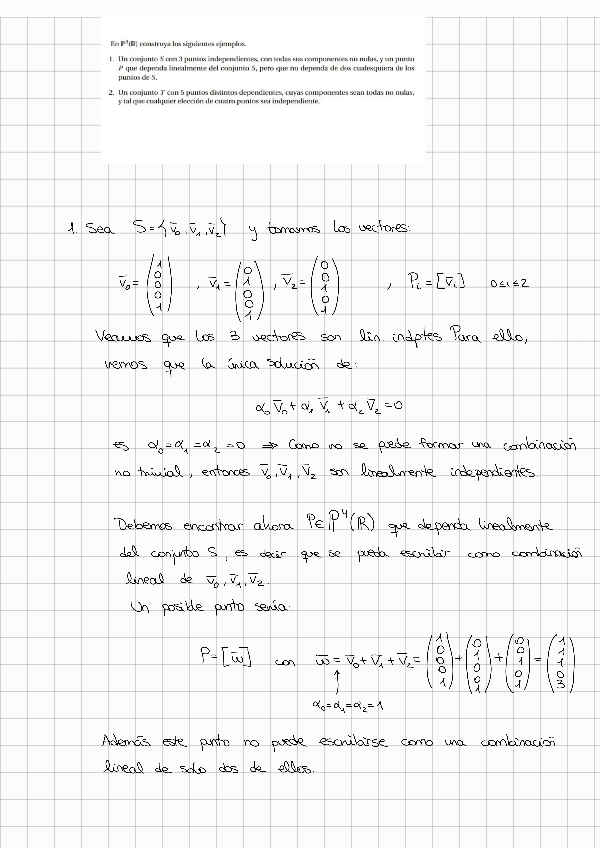 En P⁴(ℝ) construya los siguientes ejemplos.
1. Un conjunto S con 3 puntos independientes, con todas sus componentes no nulas, y un punto
P que dependa linealmente del conjunto S, pero que no dependa de dos cualesquiera de los
puntos de S.
2. Un conjunto T con 5 puntos distintos dependientes, cuyas componentes sean todas no nulas,
y tal que cualquier elección de cuatro puntos sea independiente.
1. Sea S = {v̄₀, v̄₁, v̄₂} y tomamos los vectores:
v̄₀ = (1 0 0 0 1) , v̄₁ = (0 1 0 0 1) , v̄₂ = (0 0 1 0 1) , Pᵢ = [v̄ᵢ] 0≤i≤2
Veamos que los 3 vectores son lin. indptes Para ello,
vemos que la única solución de:
α₀ v̄₀ + α₁ v̄₁ + α₂ v̄₂ = 0
es α₀ = α₁ = α₂ = 0 ⇒ Como no se puede formar una combinación
no trivial, entonces v̄₀, v̄₁, v̄₂ son linealmente independientes.
Debemos encontrar ahora P∈P⁴(ℝ) que dependa linealmente
del conjunto S, es decir que se pueda escribir como combinación
lineal de v̄₀, v̄₁, v̄₂.
Un posible punto sería:
P = [w̄] con w̄ = v̄₀ + v̄₁ + v̄₂ = (1 0 0 0 1) + (0 1 0 0 1) + (0 0 1 0 1) = (1 1 1 0 3)
↑
α₀ = α₁ = α₂ = 1
Además este punto no puede escribirse como una combinación
lineal de solo dos de ellos.